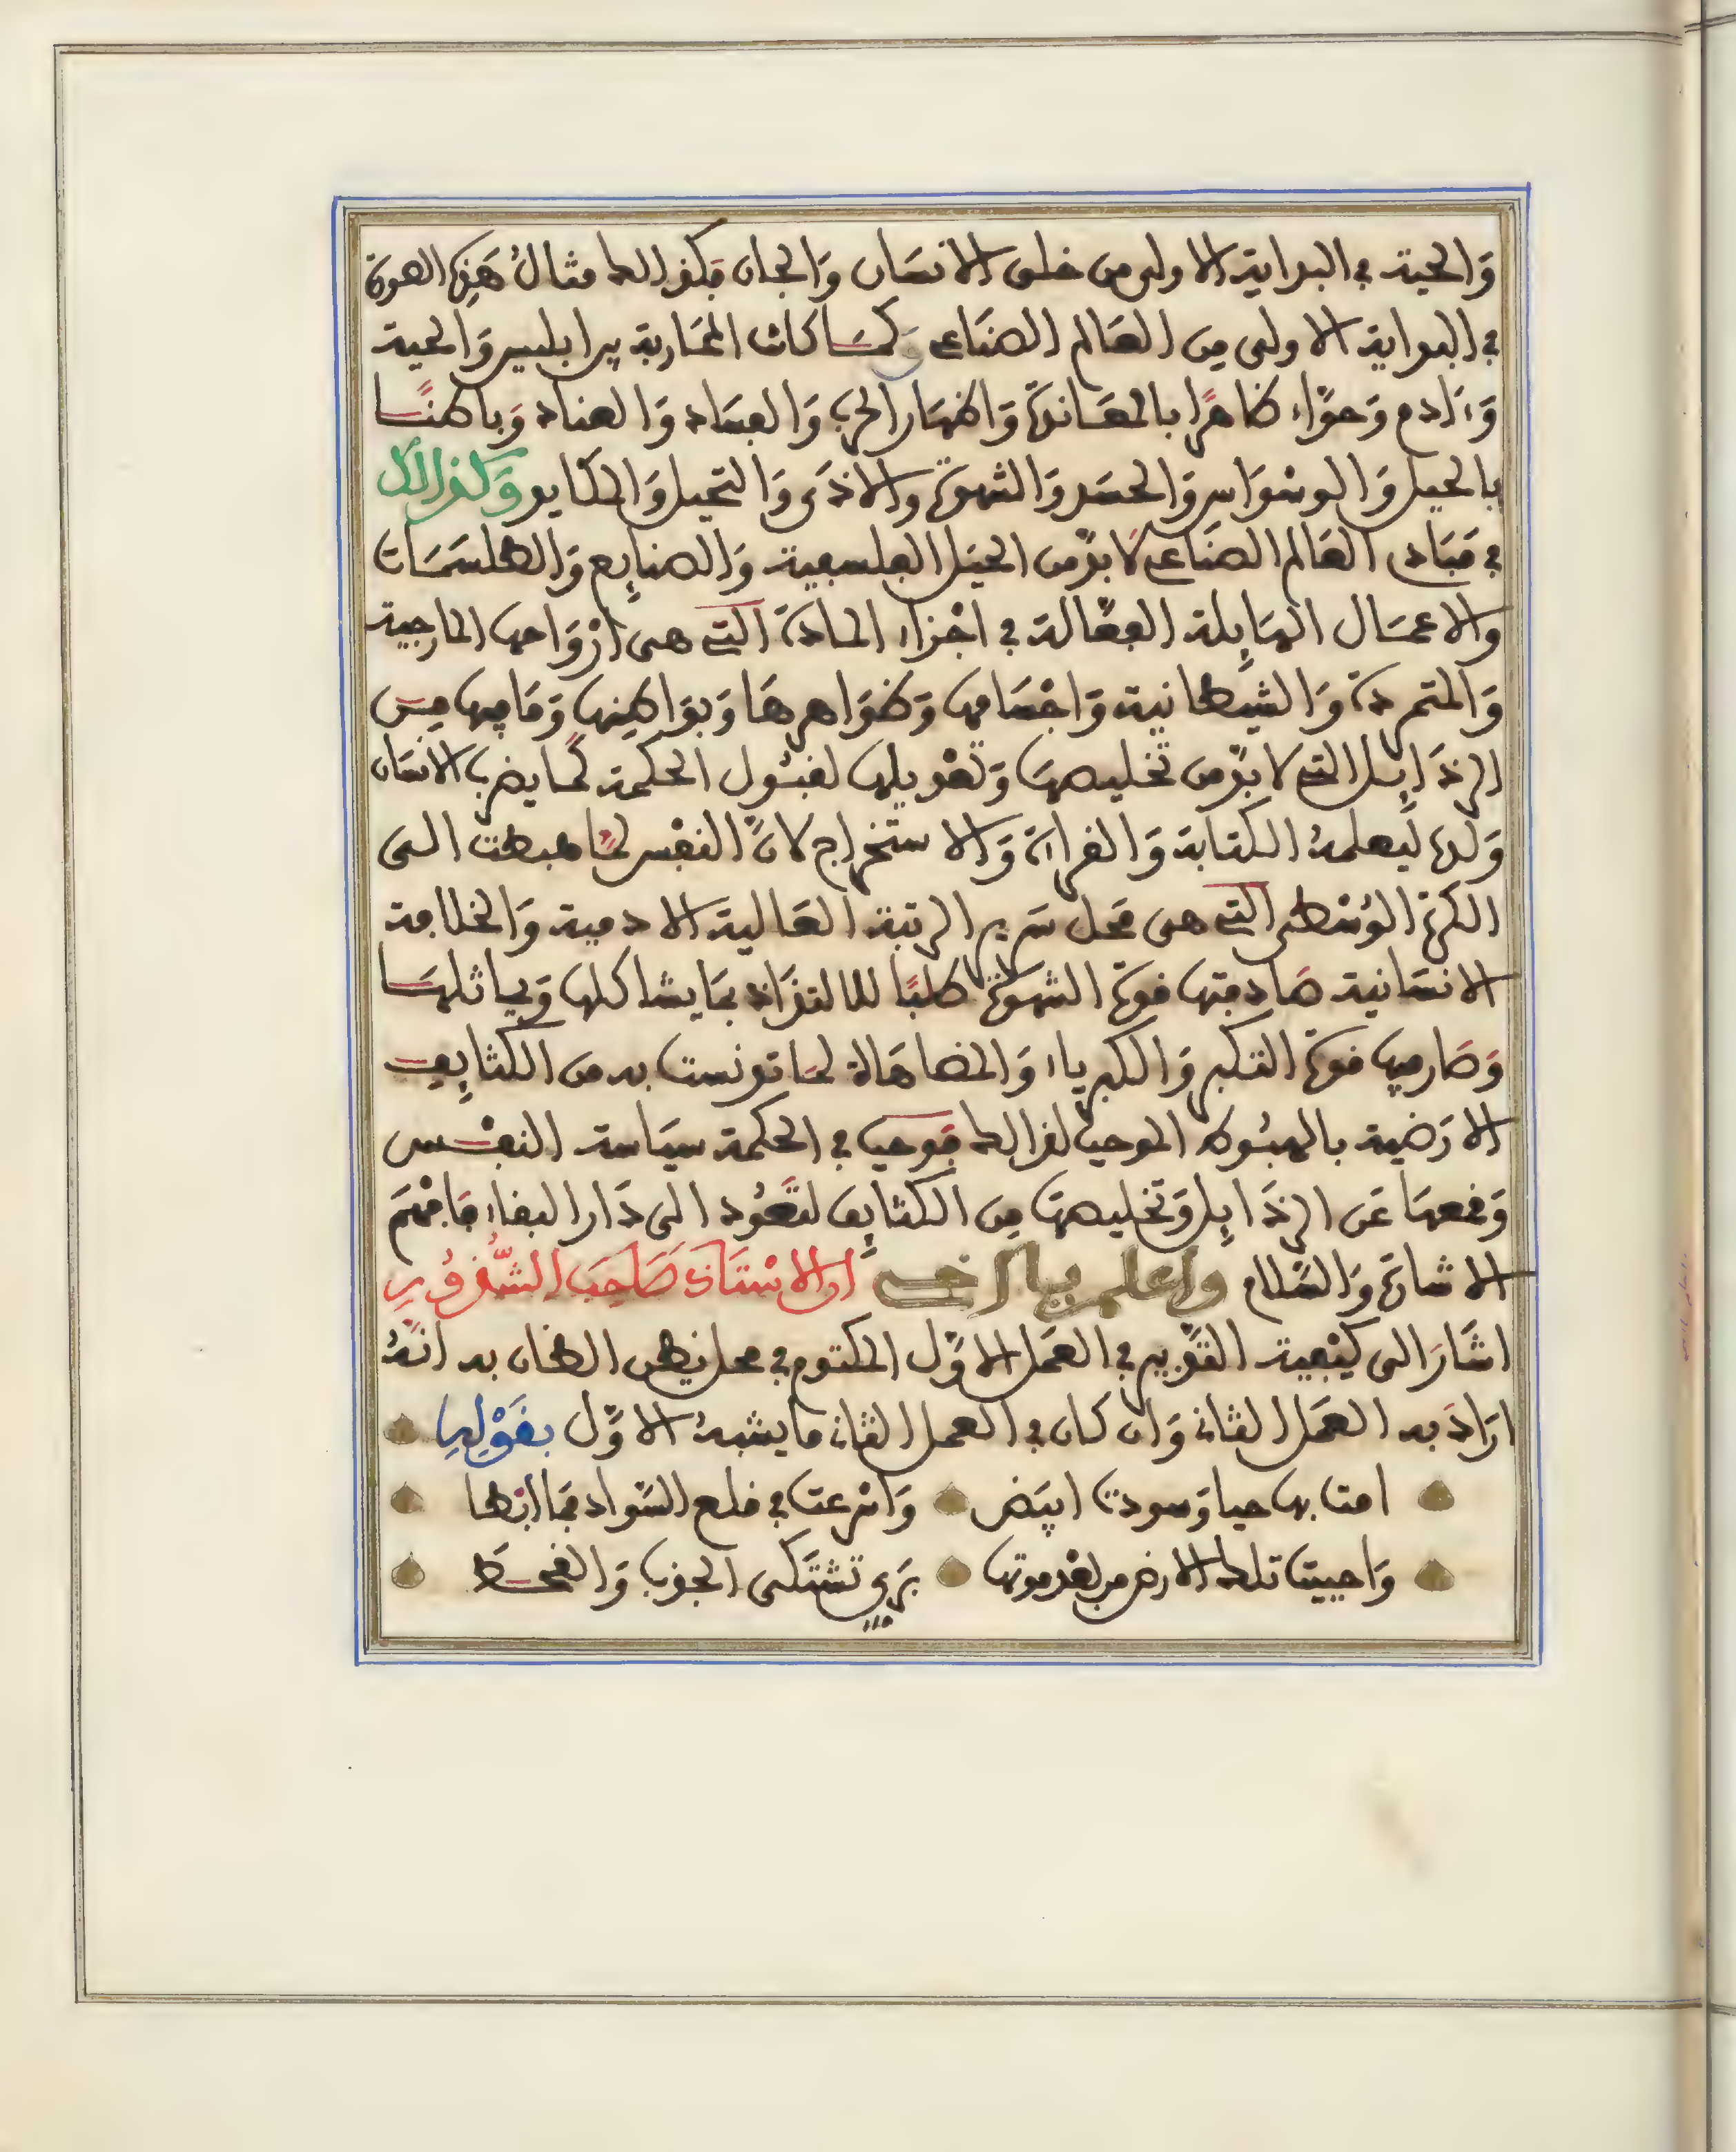 وَالحية في البداية الاولى من خلق الانسَان وَالجان فكذالك مثالُ هَذِه الصورة
في البداية الاولى مِن العَالم الصنَاعى وَكمَا كانت المحَاربة بين ابليس وَالحية
وَءَادم وَحوَّاء ظاهرًا بالمعَاندة وَاظهَار الحرب وَالفسَاد وَالعناد وَباطنًا
بالحيل وَالوسْوَاس وَالحسَد وَالشهوة والاذَى وَالتحيل وَالمكايد وَكذالك
في مَبَادى العَالم الصنَاعى لَا بدَّ من الحيَل الفلسفية وَالصنايِع وَالطلسمَات
والاعمَال الهَايِلة الفعَّالة في اجْزاء المادة التي هى ازْوَاحها المارجية
وَالمتمردة وَالشيطانية وَاجْسَامها وَظوَاهرهَا وَبوَاطِنها وَمَا فيها مِن
الرذَايِل التى لا بدّ من تخليصهَا وَتعْديلها لقبُول الحكمة كمَا يضرب الانسَان
وَلده ليعلمهُ الكتابة وَالقراءة وَالاستخراج لانَّ النفْس لمَّا هبطت الى
الكرة الوُسْطى التي هى مَحل سَرير الرتبة العَالية الادمية وَالخلافة
الانسَانية صَادفتها قوة الشهوة طلبًا للالتذَاذ بمَا يشاكلها وَيماثلهَا
وَصَار فيها قوة التكبر وَالكبرياء وَالمضاهَاة لمَا تونست به من الكثايِف
الارَضية بالهبُوط الموجب لذالك فوجب في الحكمة سيَاسة النفْس
وَقمعهَا عَن الرذَايِل وَتخليصهَا مِن الكثايِف لتَعُود الى دَار البقاء فَافْهَم
الاشارة وَالسَّلام واعلم يا اخى ان الاسْتَاذ صَاحِبَ الشُّذُورِ
اشَارَ الى كيْفية التَّدبير في العَمل الاوَّل المكتوم في محل يَظن الظان به انَّهُ
ارَادَ به العَمَل الثانى وَان كان في العمل الثانى ما يشبهُ الاوَّل بقَوْلِهِ
امتَّ بها حيا وَسودت ابيَض وَاسْرعت في خلع السَّواد فمَا ابْطا
وَاحييت تلك الارض من بَعْد موتها بَرِيٍّ تشتَكى الجذب وَالقحطَ